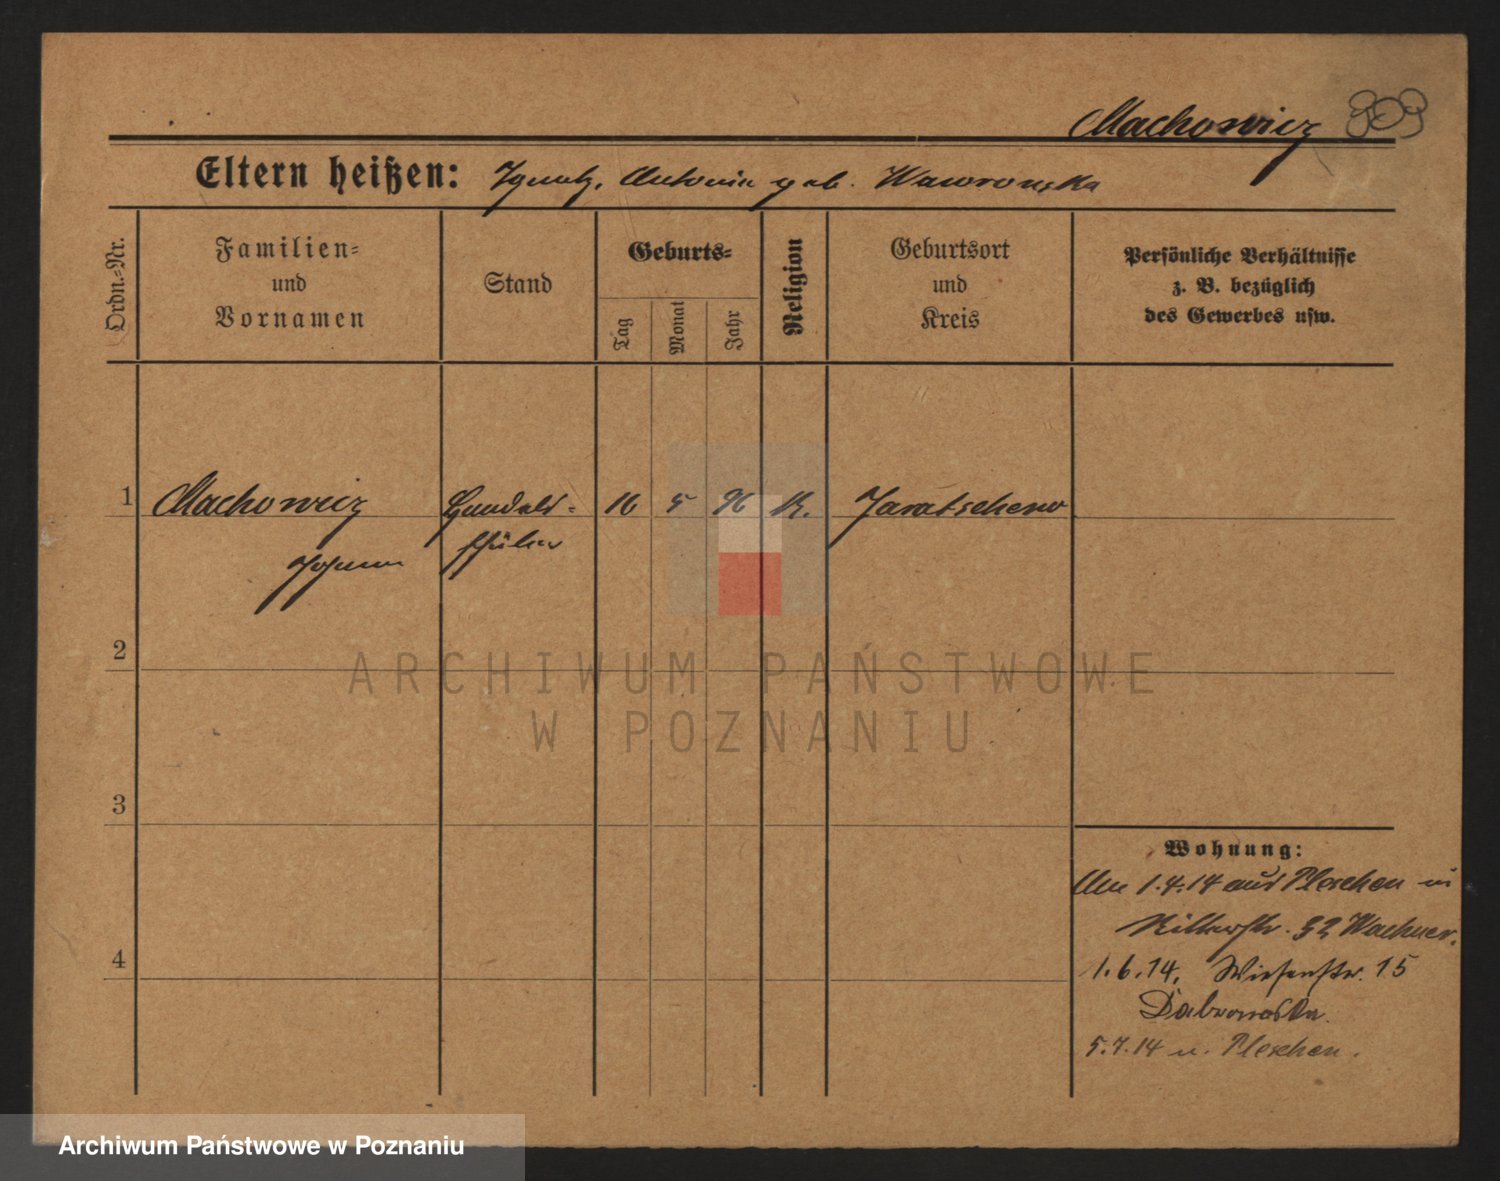 Machowicz 
Eltern heißen: Ignatz, Antonie geb. Wawronska
Ordn.-Nr.
Familien-
und
Vornamen
Stand
Geburts-
Tag
Monat
Jahr
Religion
Geburtsort
und
Kreis
Persönliche Verhältnisse
z. B. bezüglich
des Gewerbes usw.
1 Machowicz Handels- 16 5 96 K. Jaratschewo
Johann schüler
2
ARCHIWUM PAŃSTWOWE
W POZNANIU
3
4
Wohnung:
Am 1.4.14 aus Pleschen in
Ritterstr. 32
1.6.14, Wiesenstr. 15
Dabrowska.
5.7.14 n. Pleschen.
Archiwum Państwowe w Poznaniu